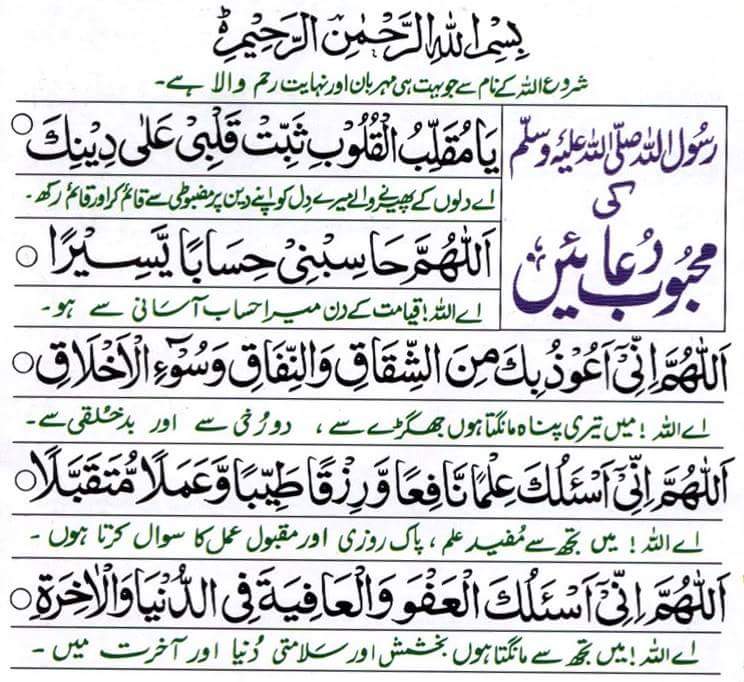 بِسْمِ اللهِ الرَّحْمٰنِ الرَّحِيْمِ
شروع اللہ کے نام سے جو بہت ہی مہربان اور نہایت رحم والا ہے۔
رسول اللہ صلی اللہ علیہ وسلم
کی
محبوب دعائیں
يَا مُقَلِّبَ الْقُلُوْبِ ثَبِّتْ قَلْبِيْ عَلٰى دِيْنِكَ
اے دلوں کے پھیرنے والے میرے دِل کو اپنے دین پر مضبوطی سے قائم کر اور قائم رکھ۔
اَللّٰهُمَّ حَاسِبْنِيْ حِسَابًا يَّسِيْرًا
اے اللہ! قیامت کے دن میرا حساب آسانی سے ہو۔
اَللّٰهُمَّ اِنِّيْٓ اَعُوْذُ بِكَ مِنَ الشِّقَاقِ وَالنِّفَاقِ وَسُوْٓءِ الْاَخْلَاقِ
اے اللہ! میں تیری پناہ مانگتا ہوں جھگڑے سے، دو رُخی سے اور بدخُلقی سے۔
اَللّٰهُمَّ اِنِّيْٓ اَسْئَلُكَ عِلْمًا نَّافِعًا وَّرِزْقًا طَيِّبًا وَّعَمَلًا مُّتَقَبَّلًا
اے اللہ! میں تجھ سے مُفید علم، پاک روزی اور مقبول عمل کا سوال کرتا ہوں۔
اَللّٰهُمَّ اِنِّيْٓ اَسْئَلُكَ الْعَفْوَ وَالْعَافِيَةَ فِي الدُّنْيَا وَالْاٰخِرَةِ
اے اللہ! میں تجھ سے مانگتا ہوں بخشش اور سلامتی دُنیا اور آخرت میں۔